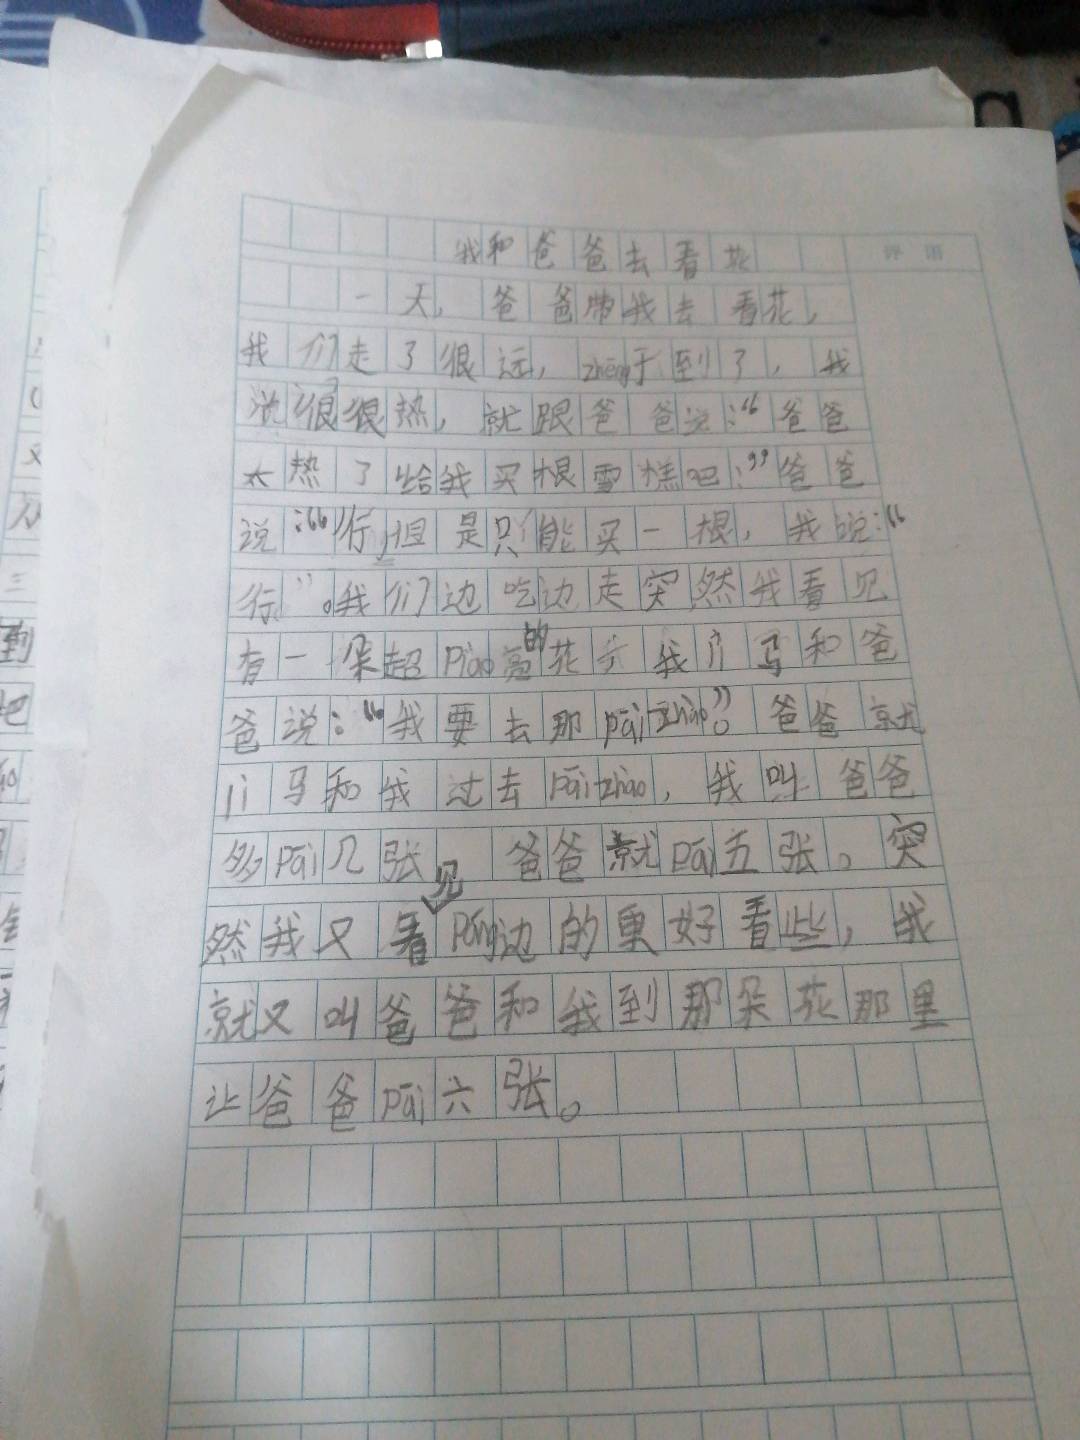 我和爸爸去看花
评语
一天，爸爸带我去看花，
我们走了很远，zhēng于到了，我
说很很热，就跟爸爸说：“爸爸
太热了给我买根雪糕吧：”爸爸
说：“行，但是只能买一根，我说：“
行”。我们边吃边走突然我看见
有一朵超piào亮的花 我jí马和爸
爸说：“我要去那pāi zhào”。爸爸就
jí马和我过去pāi zhào，我叫爸爸
多pāi几张 爸爸就pāi五张。突
然我又看见páng边的更好看些，我
就又叫爸爸和我到那朵花那里
让爸爸pāi六张。